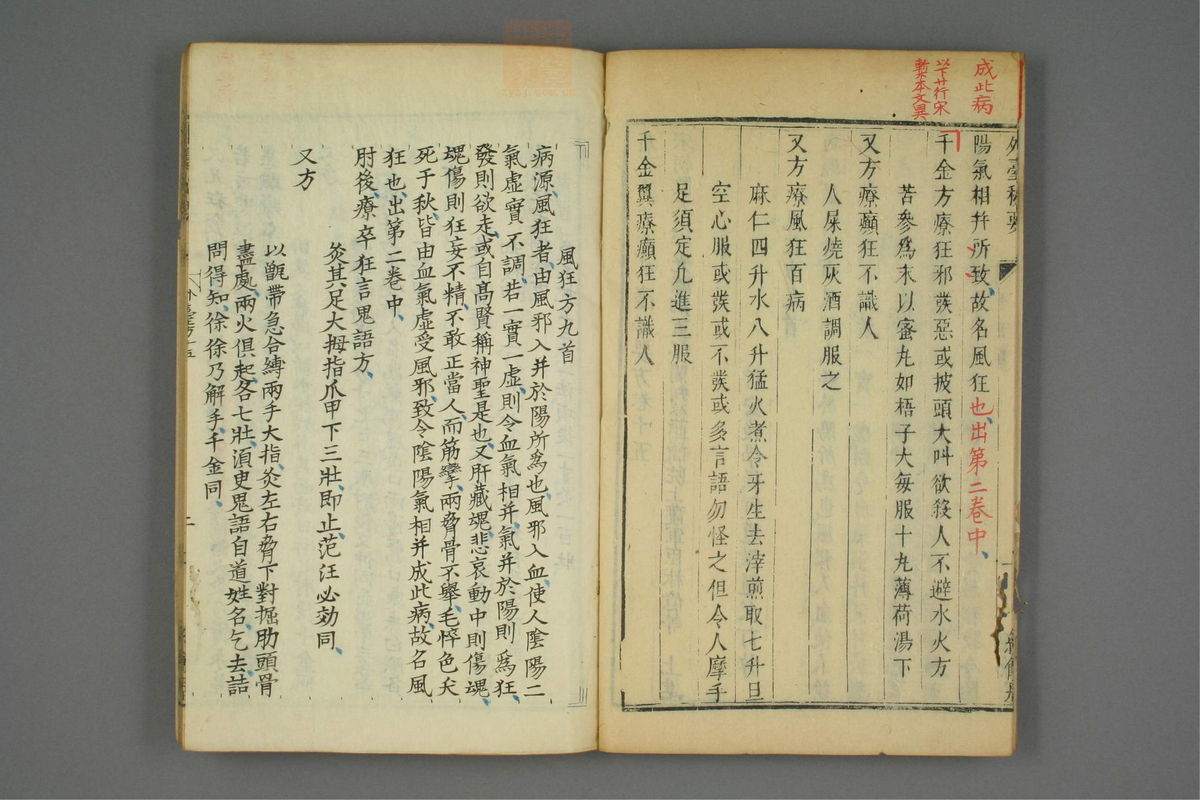 成此病
以下廿行宋
槧本文異
陽氣相并所致故名風狂也、出第二卷中、
千金方療狂邪發惡或披頭大叫欲殺人不避水火方
苦參爲末以蜜丸如梧子大每服十丸薄荷湯下
又方療癲狂不識人
人屎燒灰酒調服之
又方療風狂百病
麻仁四升水八升猛火煮令牙生去滓煎取七升旦
空心服或發或不發或多言語勿怪之但令人摩手
足須定凡進三服
千金翼療癲狂不識人
風狂方九首
病源、風狂者、由風邪入并於陽所爲也、風邪入血、使人陰陽二
氣虛實不調、若一實一虛、則令血氣相并、氣并於陽則爲狂、
發則欲走、或自高賢稱神聖是也、又肝藏魂、悲哀動中則傷魂、
魂傷則狂妄不精、不敢正當人、而筋攣、兩脅骨不舉、毛悴色夭
死于秋、皆由血氣虛受風邪、致令陰陽氣相并成此病、故名風
狂也、出第二卷中、
肘後、療卒狂言鬼語方、
灸其足大拇指爪甲下三壯、即止、范汪必効同、
又方
以甑帶急合縛兩手大指、灸左右脅下對掘肋頭骨
盡處、兩火俱起、各七壯、須臾鬼語自道姓名、乞去、詰
問得知、徐徐乃解手、千金同、